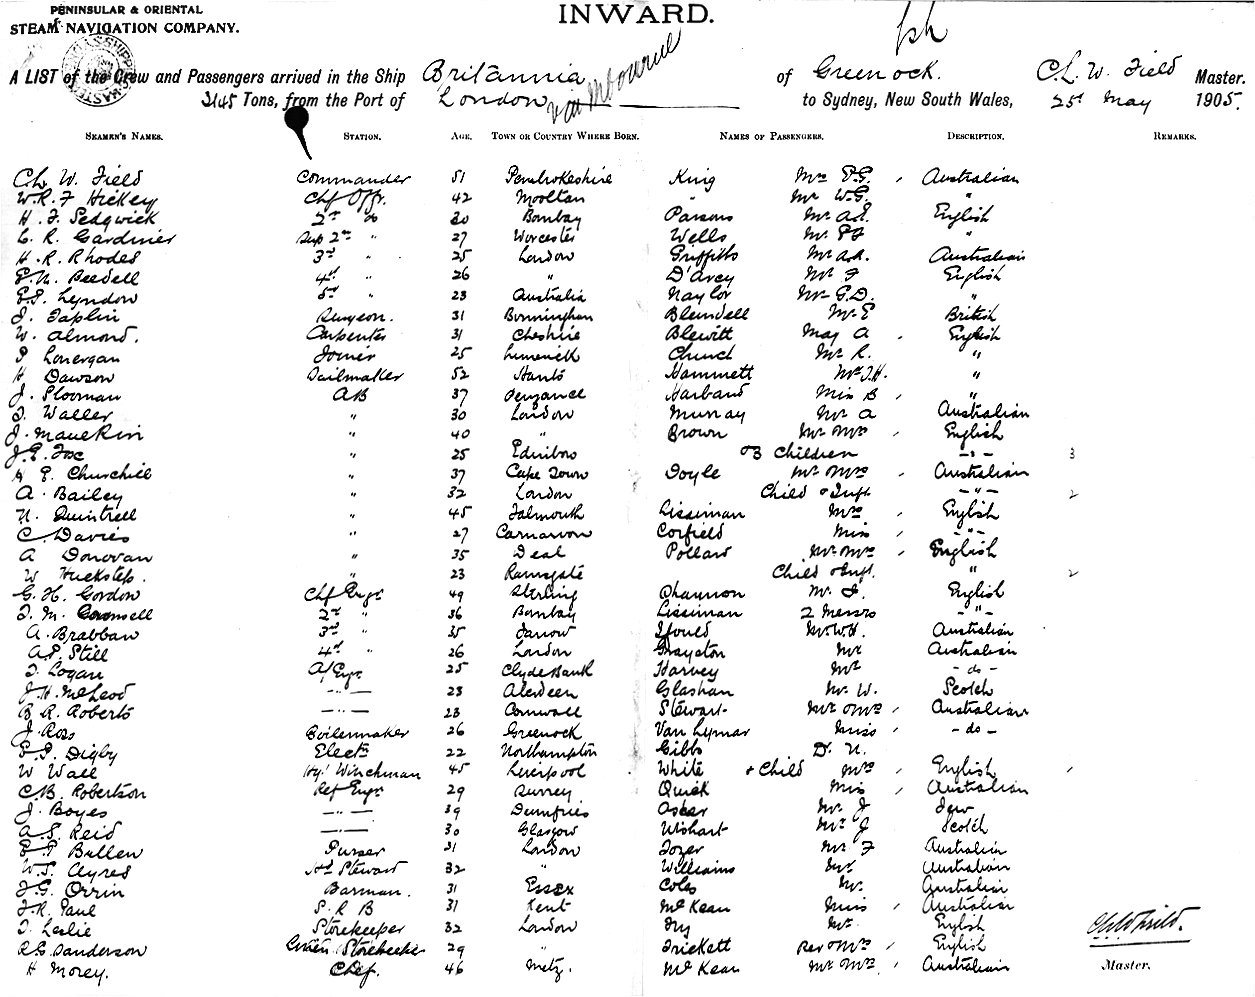 PENINSULAR & ORIENTAL
STEAM NAVIGATION COMPANY.
INWARD.
A LIST of the Crew and Passengers arrived in the Ship Britannia of Greenock. Ch. W. Field Master.
3145 Tons, from the Port of London via Melbourne to Sydney, New South Wales, 25th May 1905.
SEAMEN'S NAMES. STATION. AGE. TOWN OR COUNTRY WHERE BORN. NAMES OF PASSENGERS. DESCRIPTION. REMARKS.
Ch. W. Field Commander 51 Pembrokeshire King Mrs , Australian
W.R.F Hickey Chf Offr. 42 Mooltan " Mr W.G. "
H. F. Sedgwick 2nd " 30 Bombay Parsons Mr English
C. R. Gardiner Sup 2nd " 27 Worcester Wells Mr "
H. R. Rhodes 3rd " 25 London Griffiths Mr Australian
Beedell 4th " 26 " D'Arcy Mr F English
Lyndon 5th " 23 Australia Naylor Mr G.D. "
J. Taplin Surgeon. 31 Birmingham Blundell Mr E British
W. Almond. Carpenter 31 Cheshire Blewitt May A , English
P Lonergan Joiner 25 Limerick Church Mr R. "
H Dawson Sailmaker 52 Hants Hammett Mr "
J. Plooman AB 37 Penzance Harband Miss B , "
T. Waller " 30 London Murray Mr A Australian
J. " 40 " Brown Mr Mrs , English
J.E. Fox " 25 Edinboro 3 Children - " - 3
E. Churchill " 37 Cape Town Doyle Mr Mrs , Australian
A. Bailey " 32 London Child & Inft - " - 2
Quintrell " 45 Falmouth Lissiman Mrs , English
C. Davies " 27 Carnarvon Corfield Miss , - " -
A Donovan " 35 Deal Pollard Mr Mrs , English
W Huckstep. " 23 Ramsgate Child & Inft. " 2
G. H. Gordon Chf Engr 49 Sterling Shannon Mr English
T. M. 2nd " 36 Bombay Lissiman 2 Messrs - " -
A. Brabban 3rd " 35 Jarrow Ifould Mr W.H. Australian
A.P. Still 4th " 26 London Grayston Mr Australian
T. Logan A/Engr 25 Clydebank Harvey Mr - do -
J. H. McLeod - " - 23 Aberdeen Glashan Mr W. Scotch
B R. Roberts - " - 23 Cornwall Stewart Mr & Mrs , Australian
J. Ross Boilermaker 26 Greenock Van Lymar Miss , - do -
Digby Electn 22 Northampton Gibbs D. N.
W Wall Winchman 45 Liverpool White & Child Mrs , English ,
C.B. Robertson Ref Engr 29 Surrey Quick Miss , Australian
J. Boyes - " - 39 Dumfries Oscar Mr J Jew
A.S. Reid - " - 30 Glasgow Wishart Mr J Scotch
Bullen Purser 31 London Tozer Mr F Australian
W.S. Ayres Hd Stewart 32 " Williams Mr Australian
J.G. Orrin Barman. 31 Essex Coles Mr. Australian
J.R. Paul S.R B 31 Kent McKean Miss , Australian
T. Leslie Storekeeper 32 London Fry Mr. English
Sanderson Storekeeper 29 " Trickett Rev & Mrs , English
H Morey. Chef. 46 Metz. McKean Mr Mrs , Australian
Ch W Field.
Master.